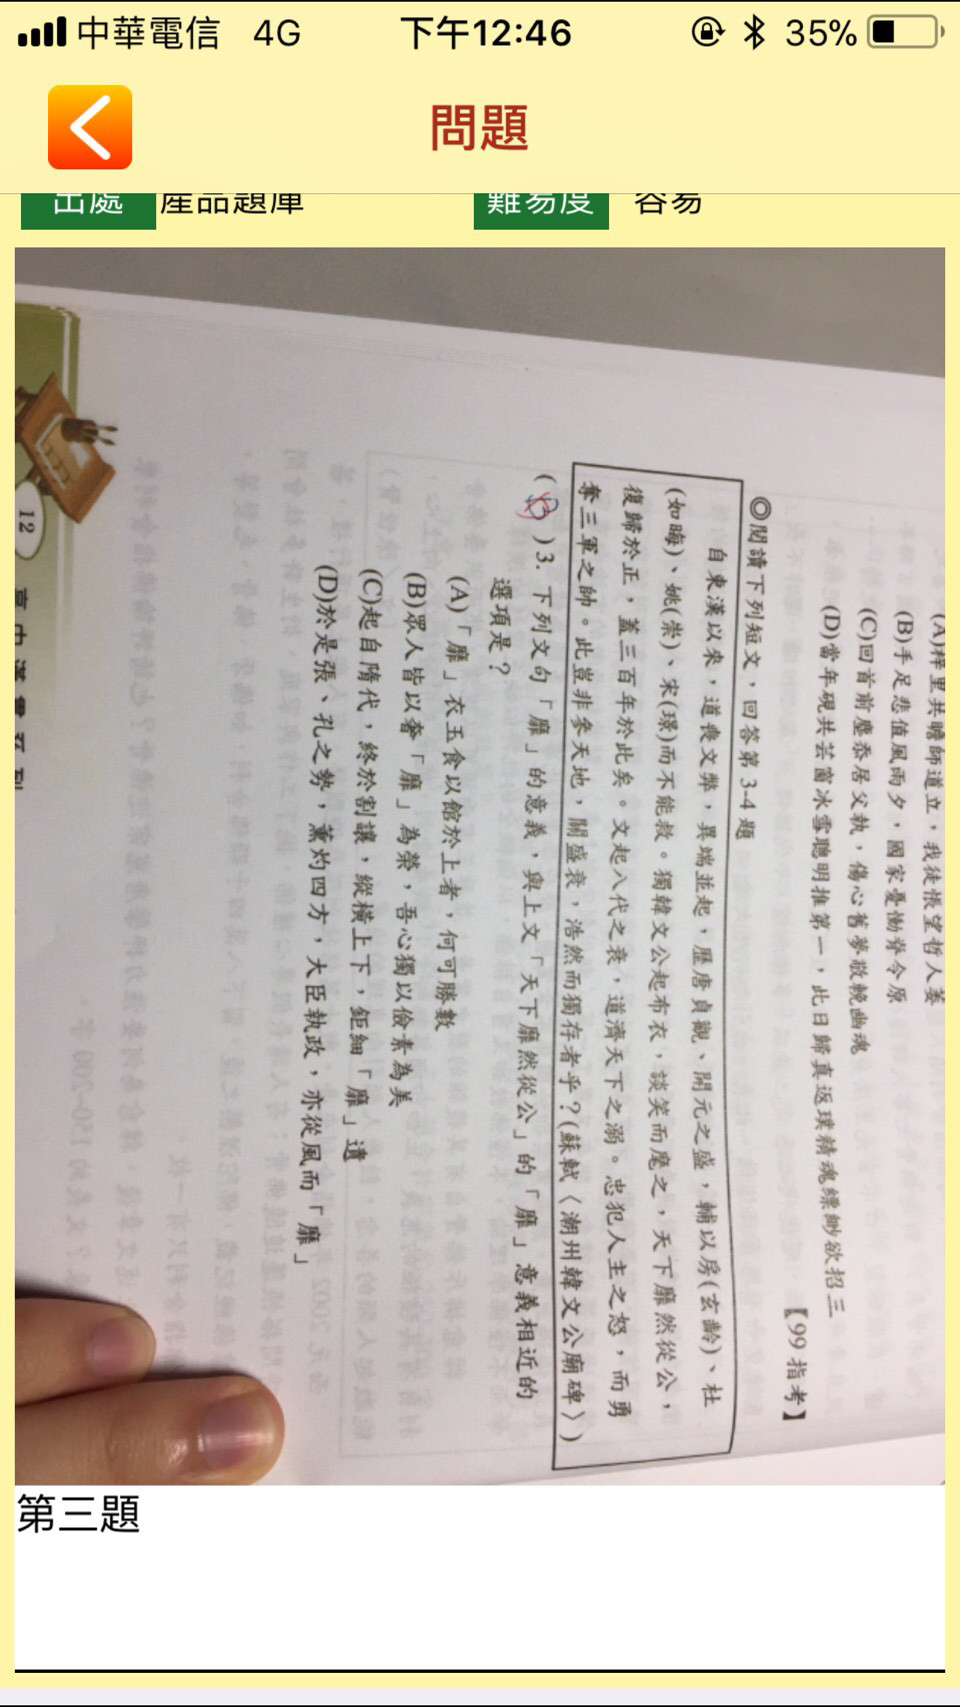 中華電信 4G 下午12:46 35%
問題
出處 產品題庫 難易度 容易
(A)梓里共瞻師道立，我徒悵望哲人萎
(B)手足悲值風雨夕，國家憂慟脊令原
(C)回首前塵忝居父執，傷心舊夢敬輓幽魂
(D)當年硯共芸窗冰雪聰明推第一，此日歸真返璞精魂縹緲欲招三
【99 指考】
◎閱讀下列短文，回答第 3-4 題
自東漢以來，道喪文弊，異端並起，歷唐貞觀、開元之盛，輔以房(玄齡)、杜
(如晦)、姚(崇)、宋(璟)而不能救。獨韓文公起布衣，談笑而麾之，天下靡然從公，
復歸於正，蓋三百年於此矣。文起八代之衰，道濟天下之溺。忠犯人主之怒，而勇
奪三軍之帥。此豈非參天地，關盛衰，浩然而獨存者乎？(蘇軾〈潮州韓文公廟碑〉)
( B )3. 下列文句「靡」的意義，與上文「天下靡然從公」的「靡」意義相近的
選項是？
(A)「靡」衣玉食以館於上者，何可勝數
(B)眾人皆以奢「靡」為榮，吾心獨以儉素為美
(C)起自隋代，終於割讓，縱橫上下，鉅細「靡」遺
(D)於是張、孔之勢，薰灼四方，大臣執政，亦從風而「靡」
12
第三題